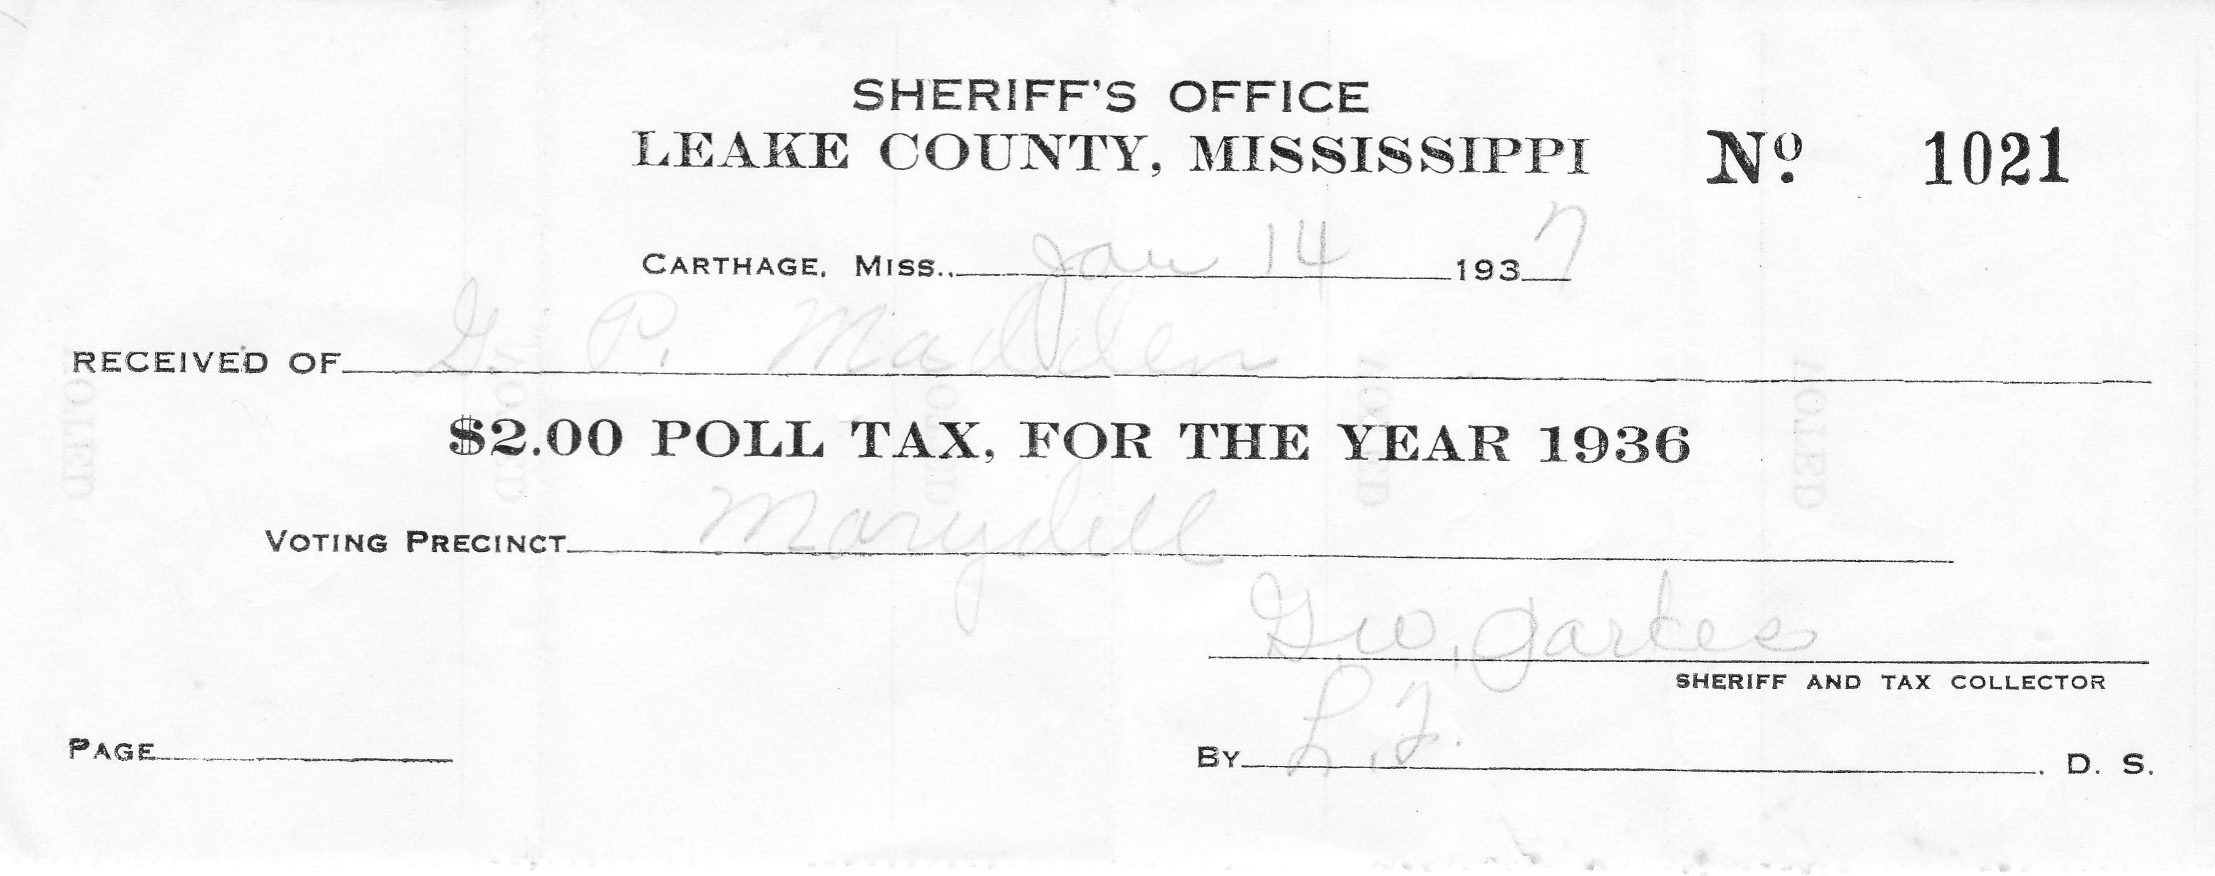 SHERIFF'S OFFICE
LEAKE COUNTY, MISSISSIPPI Nº 1021
CARTHAGE, MISS., Jan 14 1937
RECEIVED OF G. P. Madden
$2.00 POLL TAX, FOR THE YEAR 1936
VOTING PRECINCT Marydell
Geo,
SHERIFF AND TAX COLLECTOR
PAGE BY L. F. D. S.
VOTED VOTED VOTED VOTED VOTED